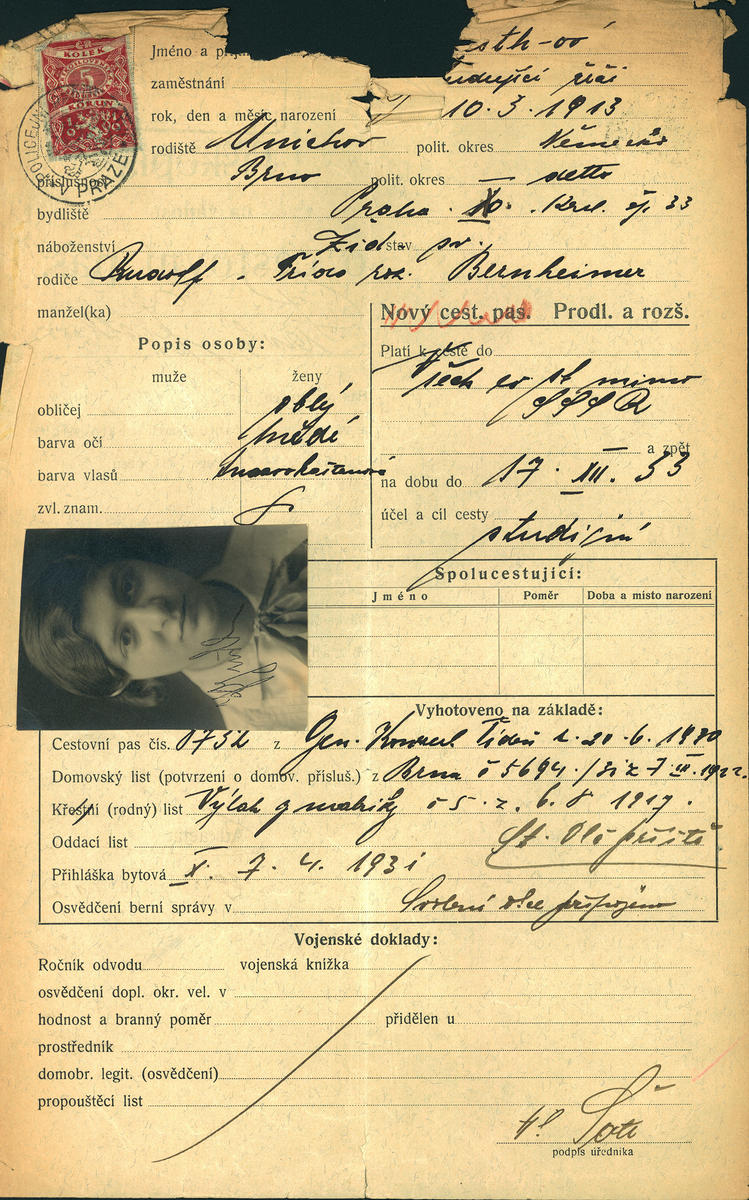 KOLEK
5
KORUN
V PRAZE
Jméno a
zaměstnání studující řečí
rok, den a měsíc narození 10.3.1913
rodiště Mnichov polit. okres Německo
příslušnost Brno polit. okres detto
bydliště Praha 33
náboženství Žid stav sv.
rodiče Rudolf - Frída roz. Bernheimer
manžel(ka)
Nový cest. pas. Prodl. a rozš.
Popis osoby:
muže ženy
obličej oblý
barva očí hnědé
barva vlasů tmavokaštanová
zvl. znam.
Platí k cestě do
všech ev. st. mimo
SSSR
a zpět
na dobu do 17. XII. 33
účel a cíl cesty
studijní
Spolucestující:
Jméno Poměr Doba a místo narození
Vyhotoveno na základě:
Cestovní pas čís. z Gen. 20.6.1930
Domovský list (potvrzení o domov. přísluš.) z Brna č 5694
Křestní (rodný) list Výtah z matriky č 5. z. 6. 8 1917.
Oddací list
Přihláška bytová X. 7. 4. 1931
Osvědčení berní správy v připojeno
Vojenské doklady:
Ročník odvodu vojenská knížka
osvědčení dopl. okr. vel. v
hodnost a branný poměr přidělen u
prostředník
domobr. legit. (osvědčení)
propouštěcí list
podpis úředníka